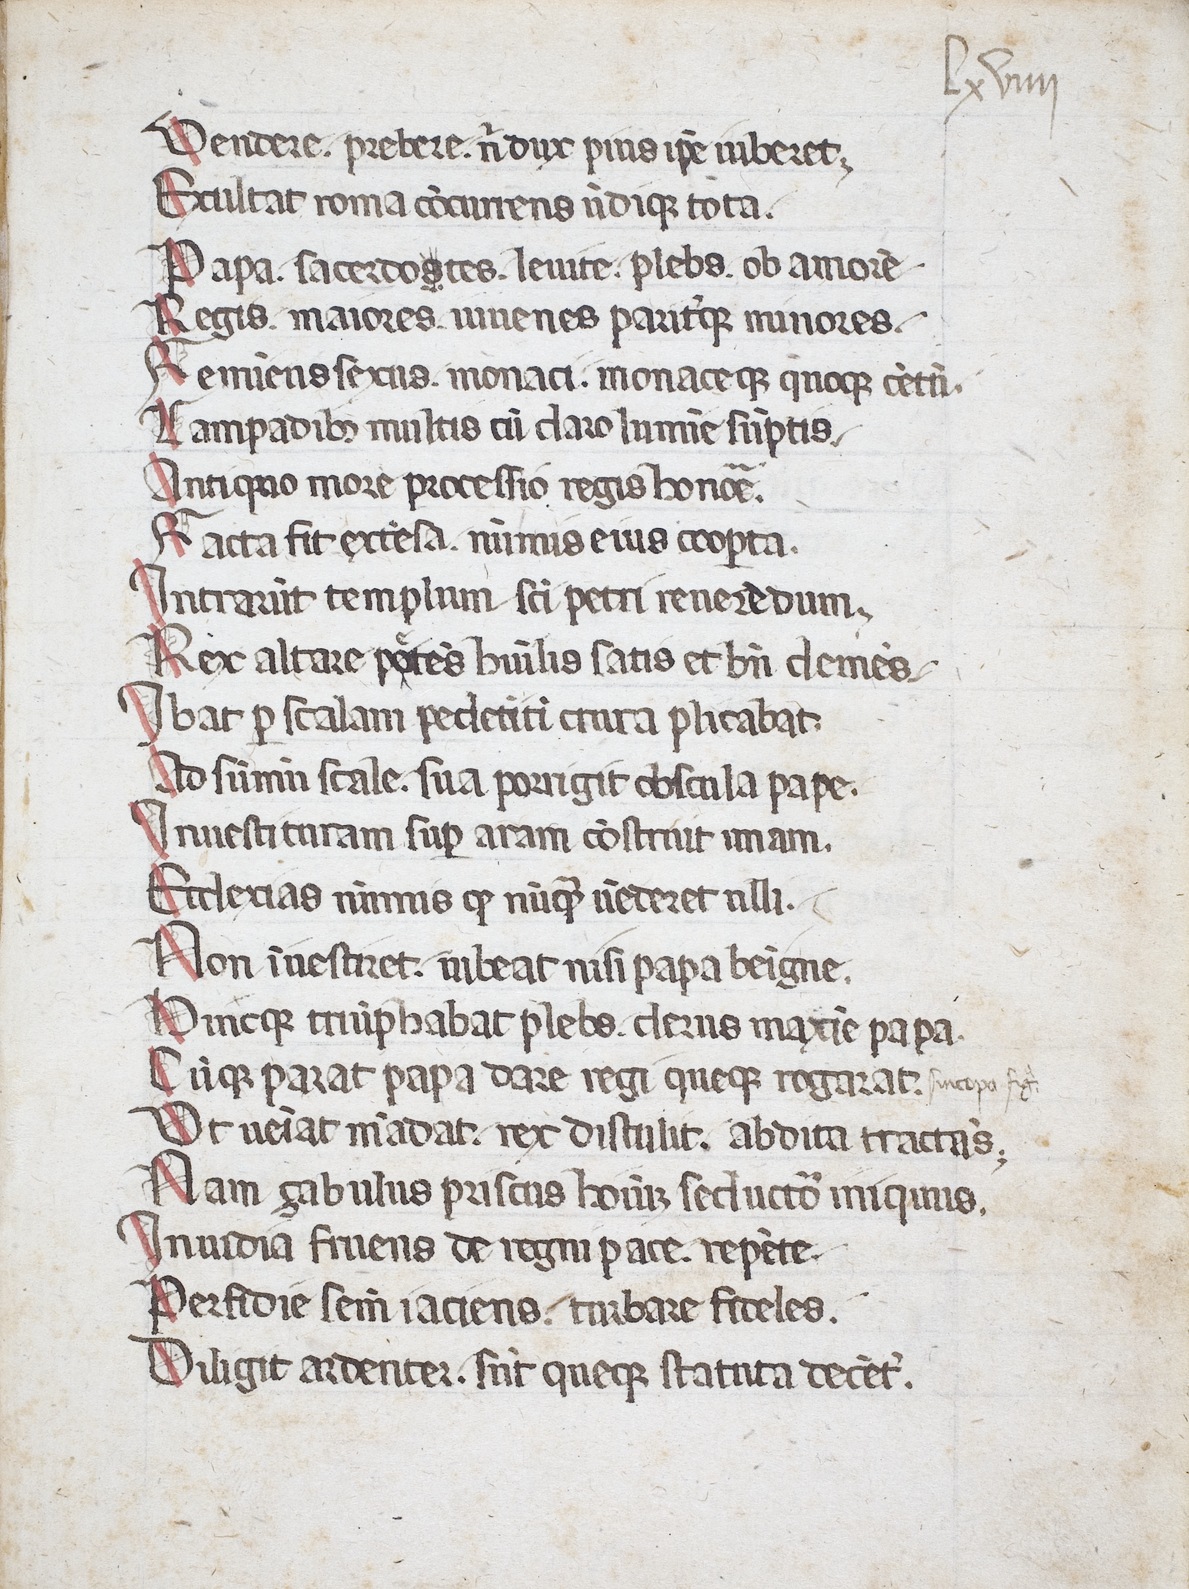 Lxviiii
Vendere. prebere. ñ dux pius ip̄e iuberet;
Exultat roma cōcurrens ūdiqꝫ tota.
Papa. sacerdotes. leuite. plebs. ob amorē
Regis. maiores. iuuenes parit̓qꝫ minores.
Femīens sexus. monaci. monaceqꝫ quoqꝫ cētū.
Lampadibꝫ multis cū claro lumīe sūptis.
Antiquo more processio regis honoē.
Facta fit extēsa. nūmis eius cooꝑta.
Intrarūt templum sc̄i petri uenerēdum;
Rex altare potēs hūilis satis et bñ clemēs.
Ibat ꝑ scalam pedetētī crura plicabat.
Ad sūmū scale. sua porrigit obscula pape.
Inuestituram suꝑ aram cōstruit unam.
Ecclexias nūmis qꝫ nūqꝫ uēderet ulli.
Non īuestiret. iubeat nisi papa beīgne.
Hincqꝫ triūphabat plebs. clerus maxīe papa.
Cūqꝫ parat papa dare regi queqꝫ rogarat. sincopa fig̓
Vt ueīat mādat. rex distulit. abdita tractās;
Nam zabulus priscus hoīuꝫ seductor̃ iniquus.
Inuidia fruens de regni pace. repēte.
Perfidie sem̄ iaciens. turbare fideles.
Diligit ardenter. sūt queqꝫ statuta decēt̓.